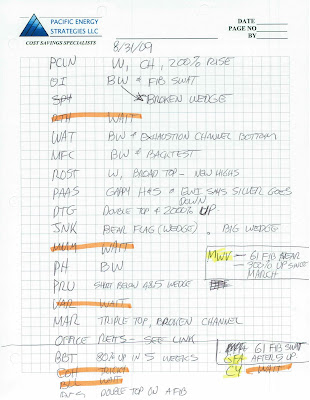 PACIFIC ENERGY
STRATEGIES LLC
COST SAVINGS SPECIALISTS
DATE
PAGE NO
BY
8/31/09
PCLN W, CH, 200% RISE
OI BW & FIB SWAT
BROKEN WEDGE
RTH WAIT
WAT BW & EXHAUSTION CHANNEL BOTTOM
MFC BW & BACKTEST
ROST W, BROAD TOP - NEW HIGHS
PAAS GAPPY H&S & EWI SAYS SILVER GOES
DOWN
DTG DOUBLE TOP & 2000% UP
JNK BEAR FLAG (WEDGE) . BIG WEDGE
MHM WAIT
MWV - 61 FIB BEAR
- 300% UP SINCE
MARCH
PH BW
PRU SHORT BELOW WEDGE
VAR WAIT
MAR TRIPLE TOP, BROKEN CHANNEL
OFFICE REITS - SEE LINK
BBT 80% UP IN 5 WEEKS
61 FIB SWAT
AFTER UP.
CY WAIT
TRICKY
WAIT
DOUBLE TOP ON A FIB